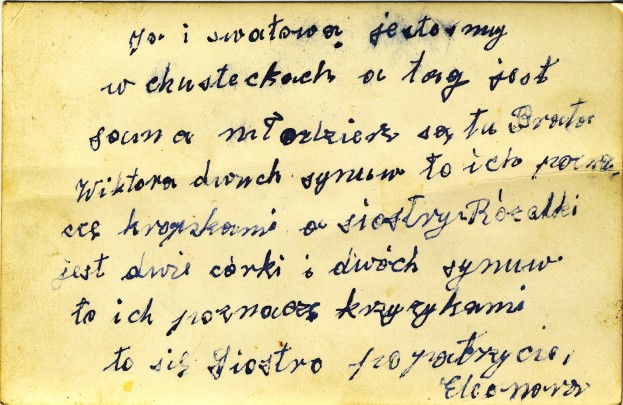 Ja i swatową jestesmy
w chusteckach a tag jest
sama młodzierz są tu Brata
Wiktora dwuch synuw to ich pozna
czę kropkami a siostry Rózalki
jest dwie córki i dwóch synuw
to ich poznaczę krzyzykami
to się Siostro popatrzycie,
Eleonora